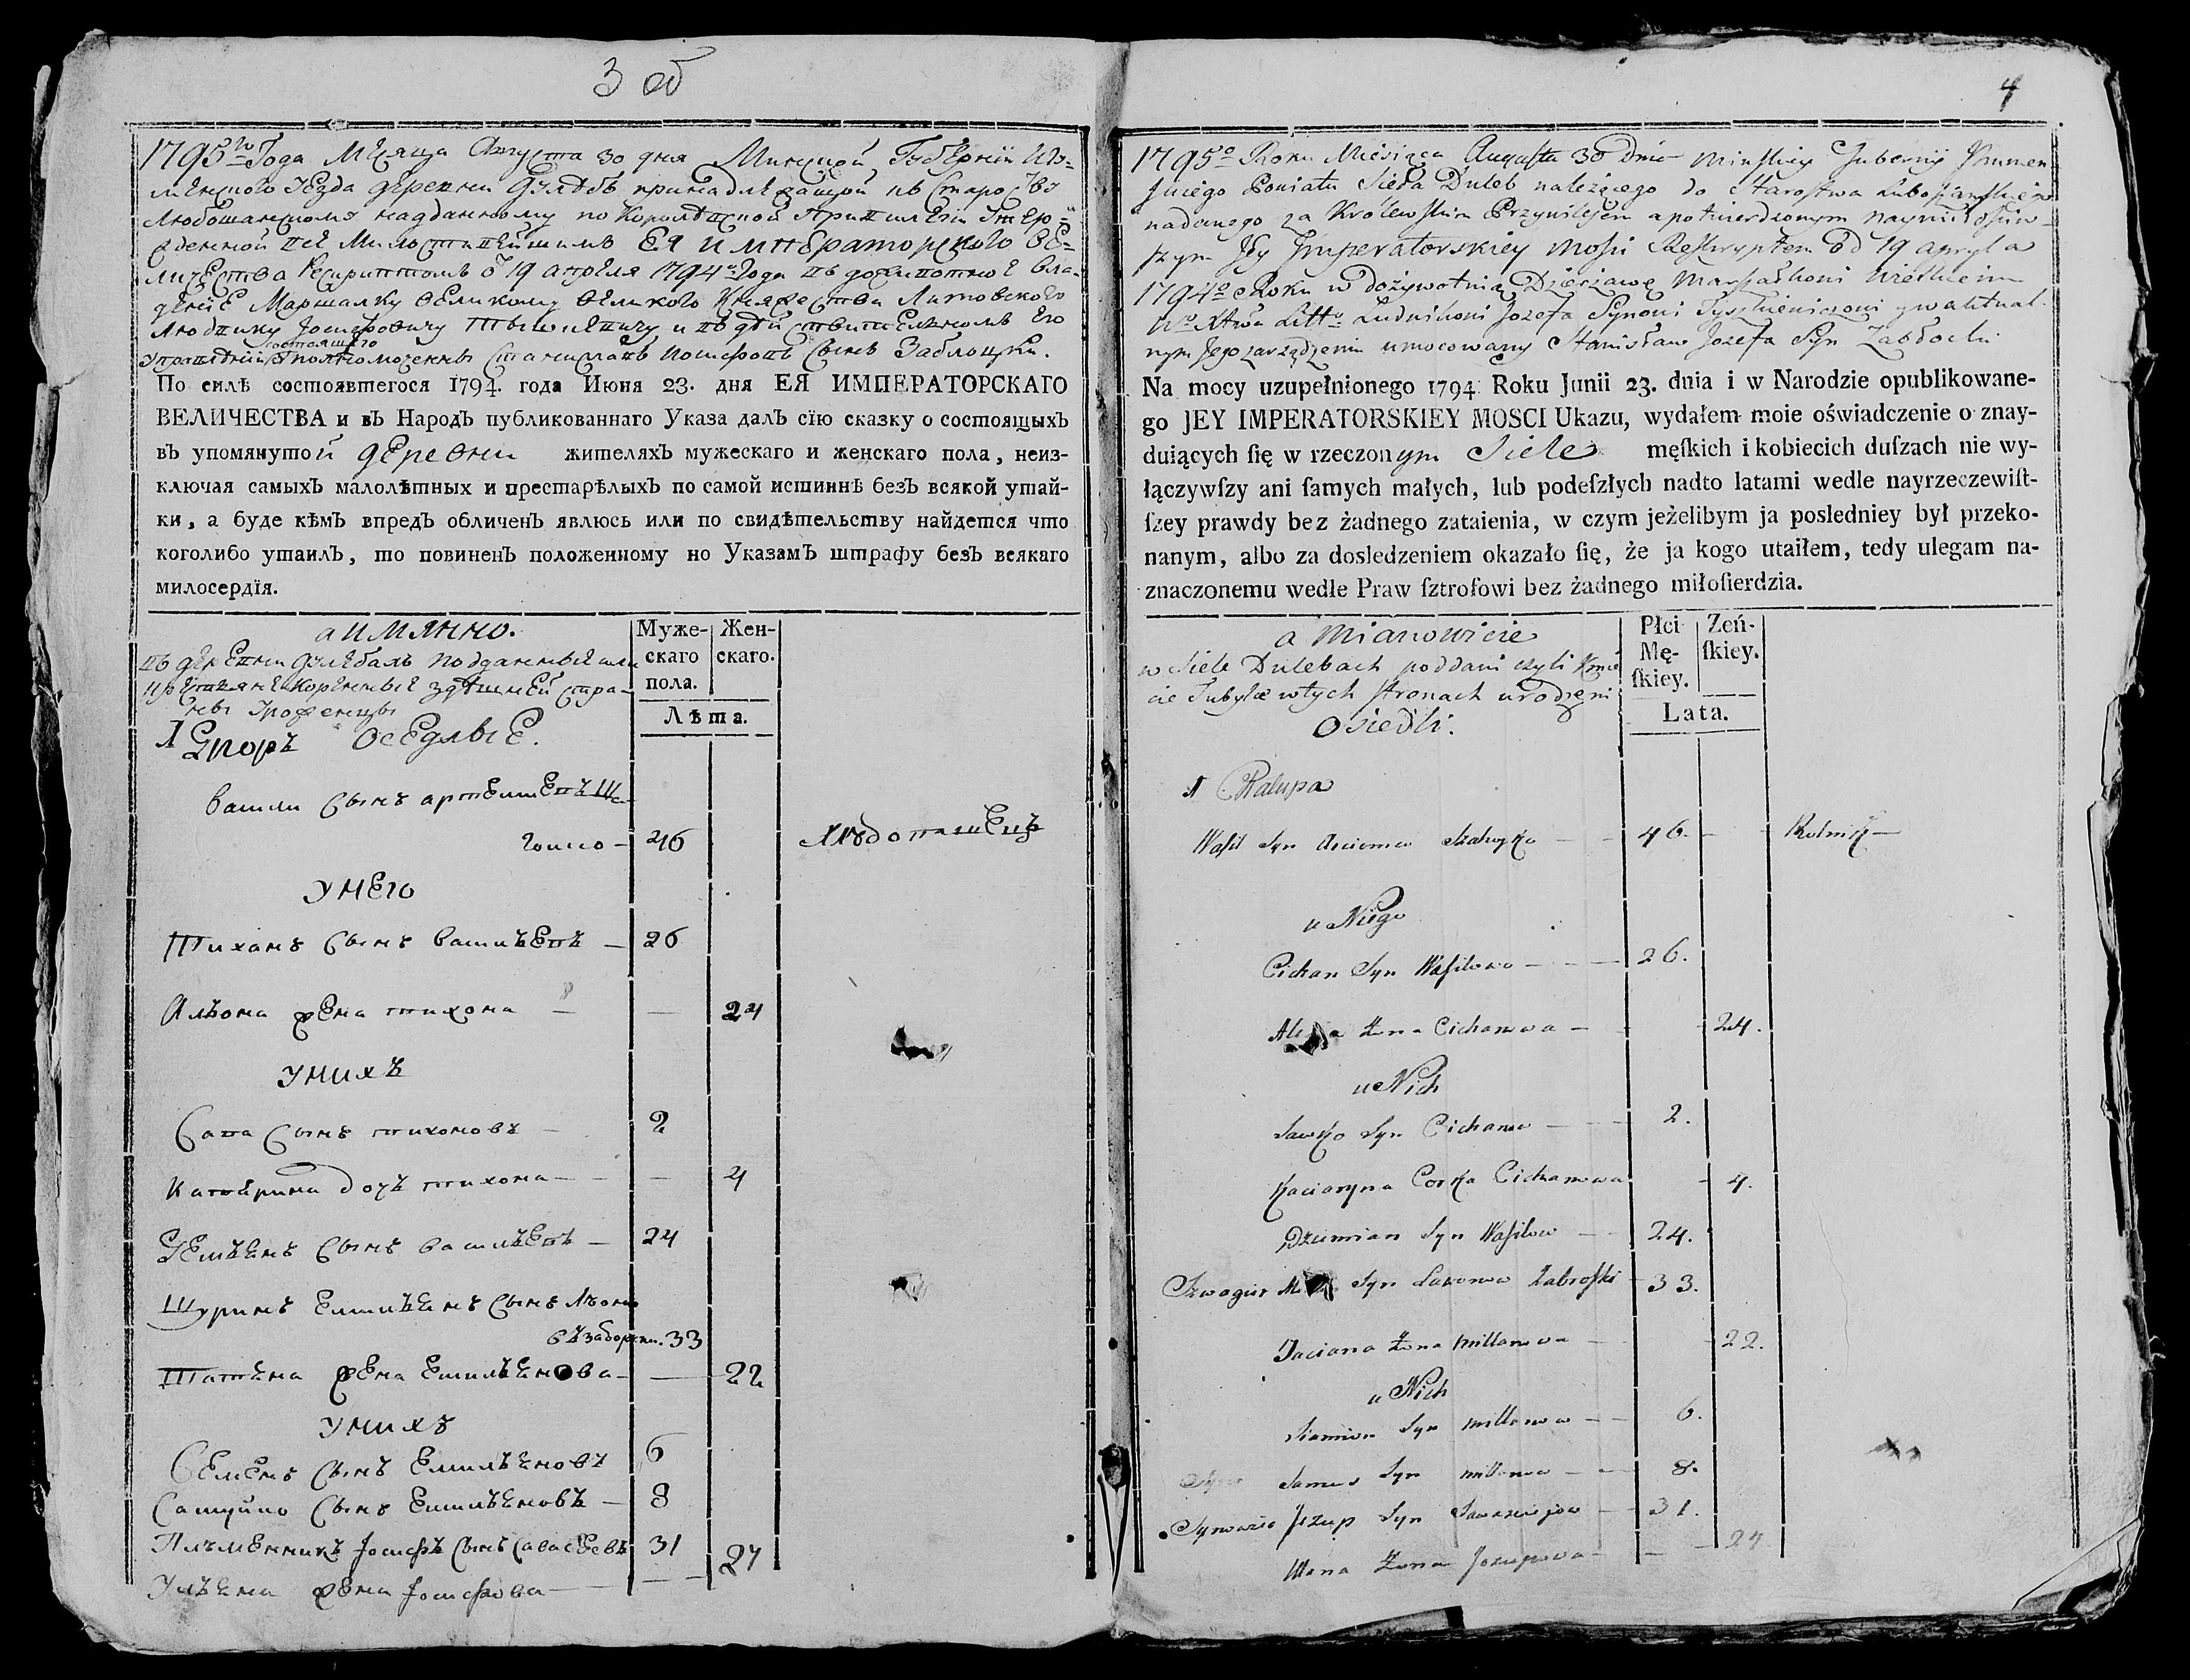 3 об
1795го Года Месяца Августа 30 дня Минской Губернии Игу-
менского Уезда деревни Дулебъ принадлежащой къ Староству
Любошанскому наданному по Королевской Привилегіи Утвер-
жденной все Милостивейшимъ ЕЯ ИМПЕРАТОРСКОГО ВЕ-
ЛИЧЕСТВА Рескриптомъ от 19 апреля 1794го Года въ дожывотное вла-
деніе Маршалку Великому Великого Княжества Литовского
Людвику Иосифовичу Тышкевичу и въ действительномъ Его
Управленіи состоящего Полномоченны Станиславъ Иосифовъ Сынъ Заблоцки.
По силѣ состоявшегося 1794. года Июня 23. дня ЕЯ ИМПЕРАТОРСКАГО
ВЕЛИЧЕСТВА и въ Народъ публикованнаго Указа далъ сїю сказку о состоящыхъ
въ упомянутой деревни жителяхъ мужескаго и женскаго пола, неиз-
ключая самыхъ малолѣтных и престарѣлыхъ по самой истиннѣ безъ всякой утай-
ки, а буде кѣмъ впредъ обличенъ явлюсь или по свидѣтельству найдется что
коголибо утаилъ, то повиненъ положенному по Указамъ штрафу безъ всякаго
милосердїя.
а имянно.
въ деревни Дулебахъ подданные или
крестьяне коренные здешней стра-
ны Урожденцы
Оседлые.
Муже-
скаго
пола.
Жен-
скаго.
Лѣта.
1 Дворъ
Васили Сынъ Артемьевъ Ша-
гойко — 46 Хлебопашецъ
У НЕГО
Тиханъ Сынъ Васильевъ — 26
Альона жена тихона — — 24
У НИХЪ
Сава Сынъ тихоновъ — 2
Катерина дочь тихона — — 4
Демьянъ Сынъ Васильевъ — 24
Шуринъ Емильянъ Сынъ Лавоно
въ заборски. 33
Татяна жена Емильянова — — 22
У НИХЪ
Семенъ Сынъ Емильяновъ 6
Самуйло Сынъ Емильяновъ — 8
Племенникъ Іосифъ Сынъ Савасеевъ 31
Ульяна жена Іосифова — — 24
4
1795o Roku Miesiąca Augusta 30 Dnia Minskiey Gubernij Ihumen
skiego Powiatu Sieła Duleb należącego do Starostwa Luboszanskiego
nadanego za Królewskim Przywilejem a potwierdzonym naymiłościw-
szym Jey Imperatorskiey Mości Reskryptem od 19. apryla
1794o Roku w dożywotnią Dzierżawę Marszałkowi Wielkiemu
Wo Xtwa Litto Ludwikowi Jozefa Synowi Tyszkiewiczowi y w aktual-
nym Jego zarządzeniu umocowany Stanisław Jozefa Syn Zabłocki
Na mocy uzupełnionego 1794 Roku Junii 23. dnia i w Narodzie opublikowane-
go JEY IMPERATORSKIEY MOSCI Ukazu, wydałem moie oświadczenie o znay-
duiących ſię w rzeczonym Siele męſkich i kobiecich duſzach nie wy-
łączywſzy ani ſamych małych, lub podeſzłych nadto latami wedle nayrzeczewiſt-
ſzey prawdy bez żadnego zataienia, w czym jeżelibym ja posledniey był przeko-
nanym, albo za dosledzeniem okazało ſię, że ja kogo utaiłem, tedy ulegam na-
znaczonemu wedle Praw ſztrofowi bez żadnego miłoſierdzia.
a Mianowicie
w Siele Dulebach poddani czyli Kmie
cie Tubylce w tych stronach urodzeni
Osiedli.
Płci
Mę-
ſkiey.
Zeń-
ſkiey.
Lata.
1 Chalupa
Wasil Syn Arciomow Szahoyko — 46. — Rolnik —
u Niego
Cichan Syn Wasilowa — 26.
Żona Cichanowa — 24.
u Nich
Sawko Syn Cichanow — 2.
Kaciaryna Corka Cichanowa — 4.
Dziemian Syn Wasilow — 24.
Szwagier Syn Lawonow Zaborski — 33.
Taciana Żona Millanowa — 22.
u Nich
Siamion Syn Millanow — 6.
Samus Syn Millanow — 8.
Synowiec Jozup Syn Sawasciejow — 31.
Ulana Żona Jozupowa — 24